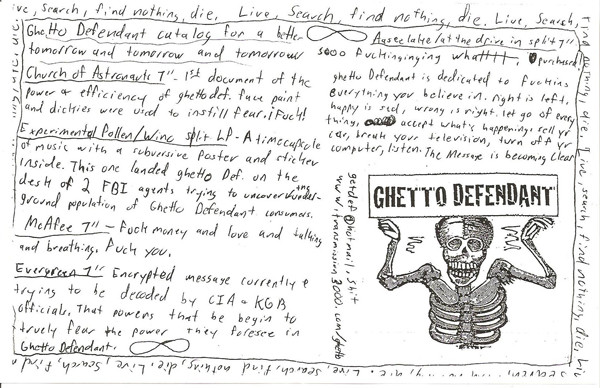 ve, search, find nothing, die. Live, Search, find nothing, die. Live, Search,
find nothing, die, Live, search, find nothing, die, Liv
Ghetto Defendant catalog for a better
tomorrow and tomorrow and tomorrow
Church of Astronauts 7". 1st document of the
power & efficiency of ghetto def. face paint
and dickies were used to instill fear. Fuck!
Experimental Pollen/Wino split LP - A timecapsule
of music with a subversive poster and sticker
inside. This one landed ghetto Def. on the
desk of 2 FBI agents trying to uncover the under-
ground population of Ghetto Defendant consumers.
McAfee 7" - Fuck money and love and talking
and breathing. Fuck you.
Evergreen 7" Encrypted message currently
trying to be decoded by CIA & KGB
officials. That powers that be begin to
truely fear the power they foresee in
Ghetto Defendant.
/at the drive in split 7"
sooo fuckinginging what!!!!!.
ghetto Defendant is dedicated to fucking
everything you believe in. right is left,
happy is sad, wrong is right. let go of every
thing, accept what's happening. sell yr
car, break your television, turn off yr
computer, listen. The Message is becoming clear
GHETTO DEFENDANT
getdef@hotmail.shit
search, find nothing, die, Live, search, find nothing, die, Live, search, find